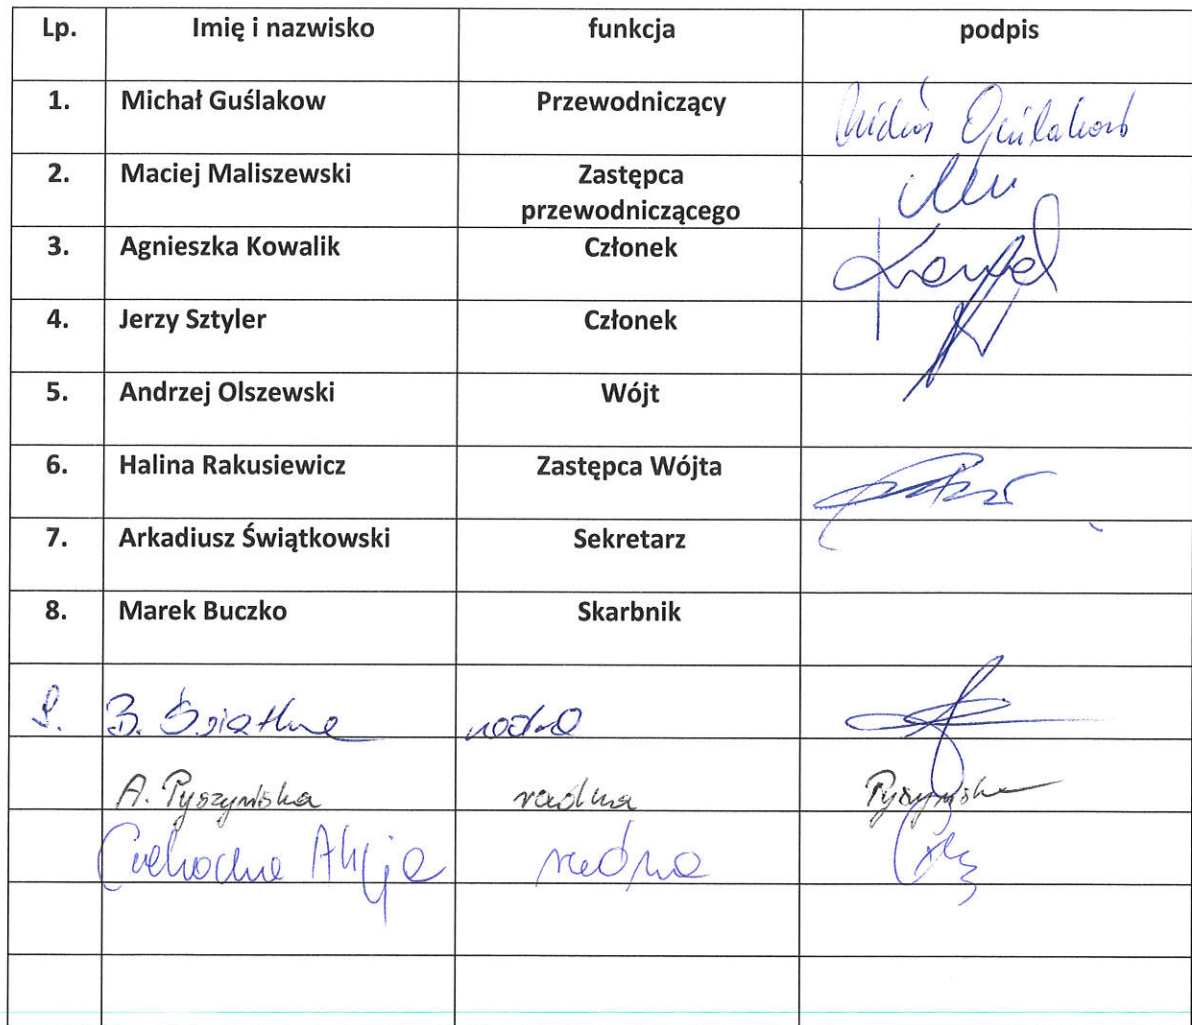 Lp. Imię i nazwisko funkcja podpis
1. Michał Guślakow Przewodniczący Michał Guślakow
2. Maciej Maliszewski Zastępca
przewodniczącego
3. Agnieszka Kowalik Członek
4. Jerzy Sztyler Członek
5. Andrzej Olszewski Wójt
6. Halina Rakusiewicz Zastępca Wójta
7. Arkadiusz Świątkowski Sekretarz
8. Marek Buczko Skarbnik
B. radna
A. Pyszyńska radna Pyszyńska
Alicja radna